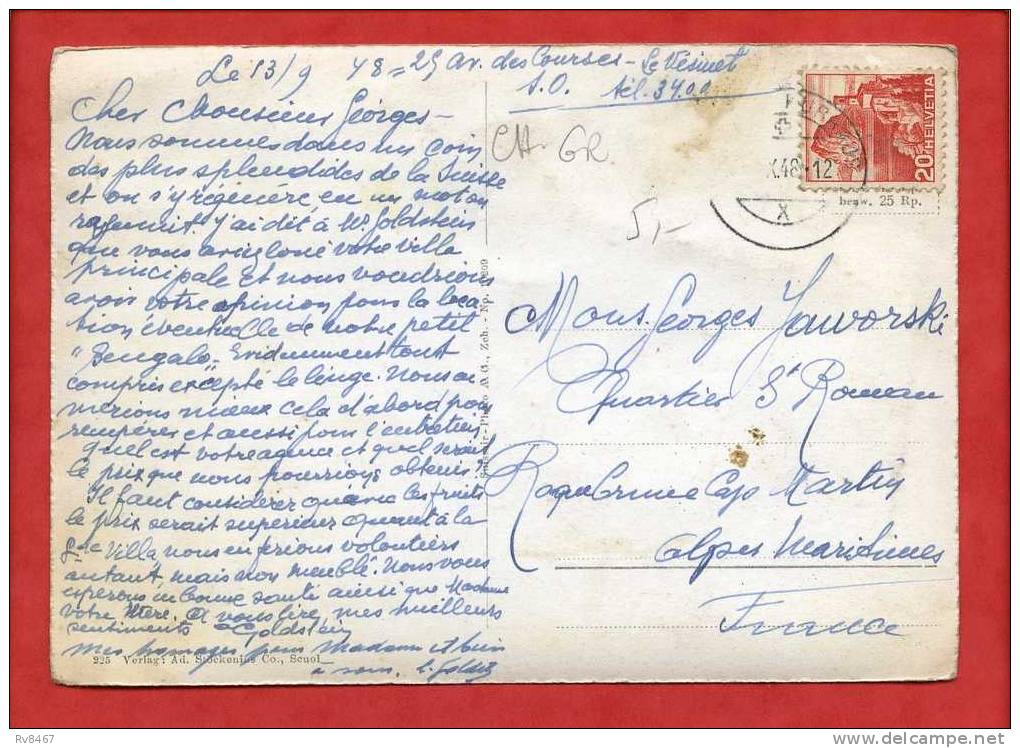 Le 13/9 48 = 29 av. des Courses - Le Vésinet
S.O. Tél. 34.00
Cher Monsieur Georges -
Nous sommes dans un coin
des plus splendides de la Suisse
et on s'y régénère en un mot on
rajeunit. J'ai dit à Mr. Goldstein
que vous aviez loué votre villa
principale et nous voudrions
avoir votre opinion pour la loca
tion éventuelle de notre petit
"Bengalo". Evidemment tout
compris excepté le linge. Nous ai
merions mieux cela d'abord pour
et aussi pour l'entretien
quel est votre agence et quel serait
le prix que nous pourrions obtenir?
Il faut considérer qu'avec les fruits
le prix serait superieur quant à la
gde Villa, nous en ferions volontiers
autant, mais non meublé. Nous vous
espérons en bonne santé ainsi que Madame
votre Mère. A vous lire, mes meilleurs
sentiments Goldstein
mes homages pour Madame et bien
à vous. L. Goldst
225 Verlag: Ad. Stockenius Co., Scuol
Photo A.G., Zch. - Np.
CH. GR.
5,-
20 HELVETIA
X.48.-12
X
benw. 25 Rp.
Mons. Georges Jaworski
Quartier St Roman
Roquebrune Cap Martin
Alpes Maritimes
France
Rv8467
www.delcampe.net